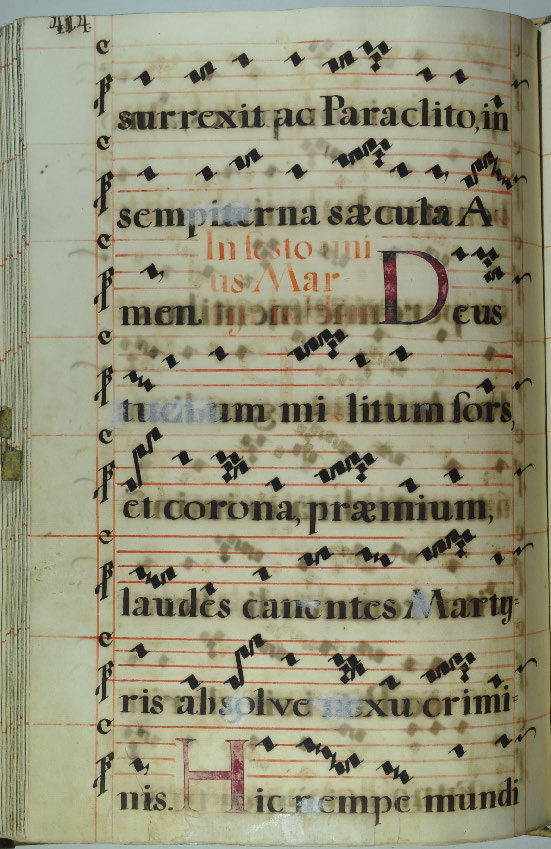 414
surrexit ac Paraclito, in
sempiterna sæcula A
In festo uni
us Mar
men. Deus
tuorum mi litum sors,
et corona, præmium,
laudes canentes Marty=
ris absolve nexu crimi=
nis. Hic nempe mundi